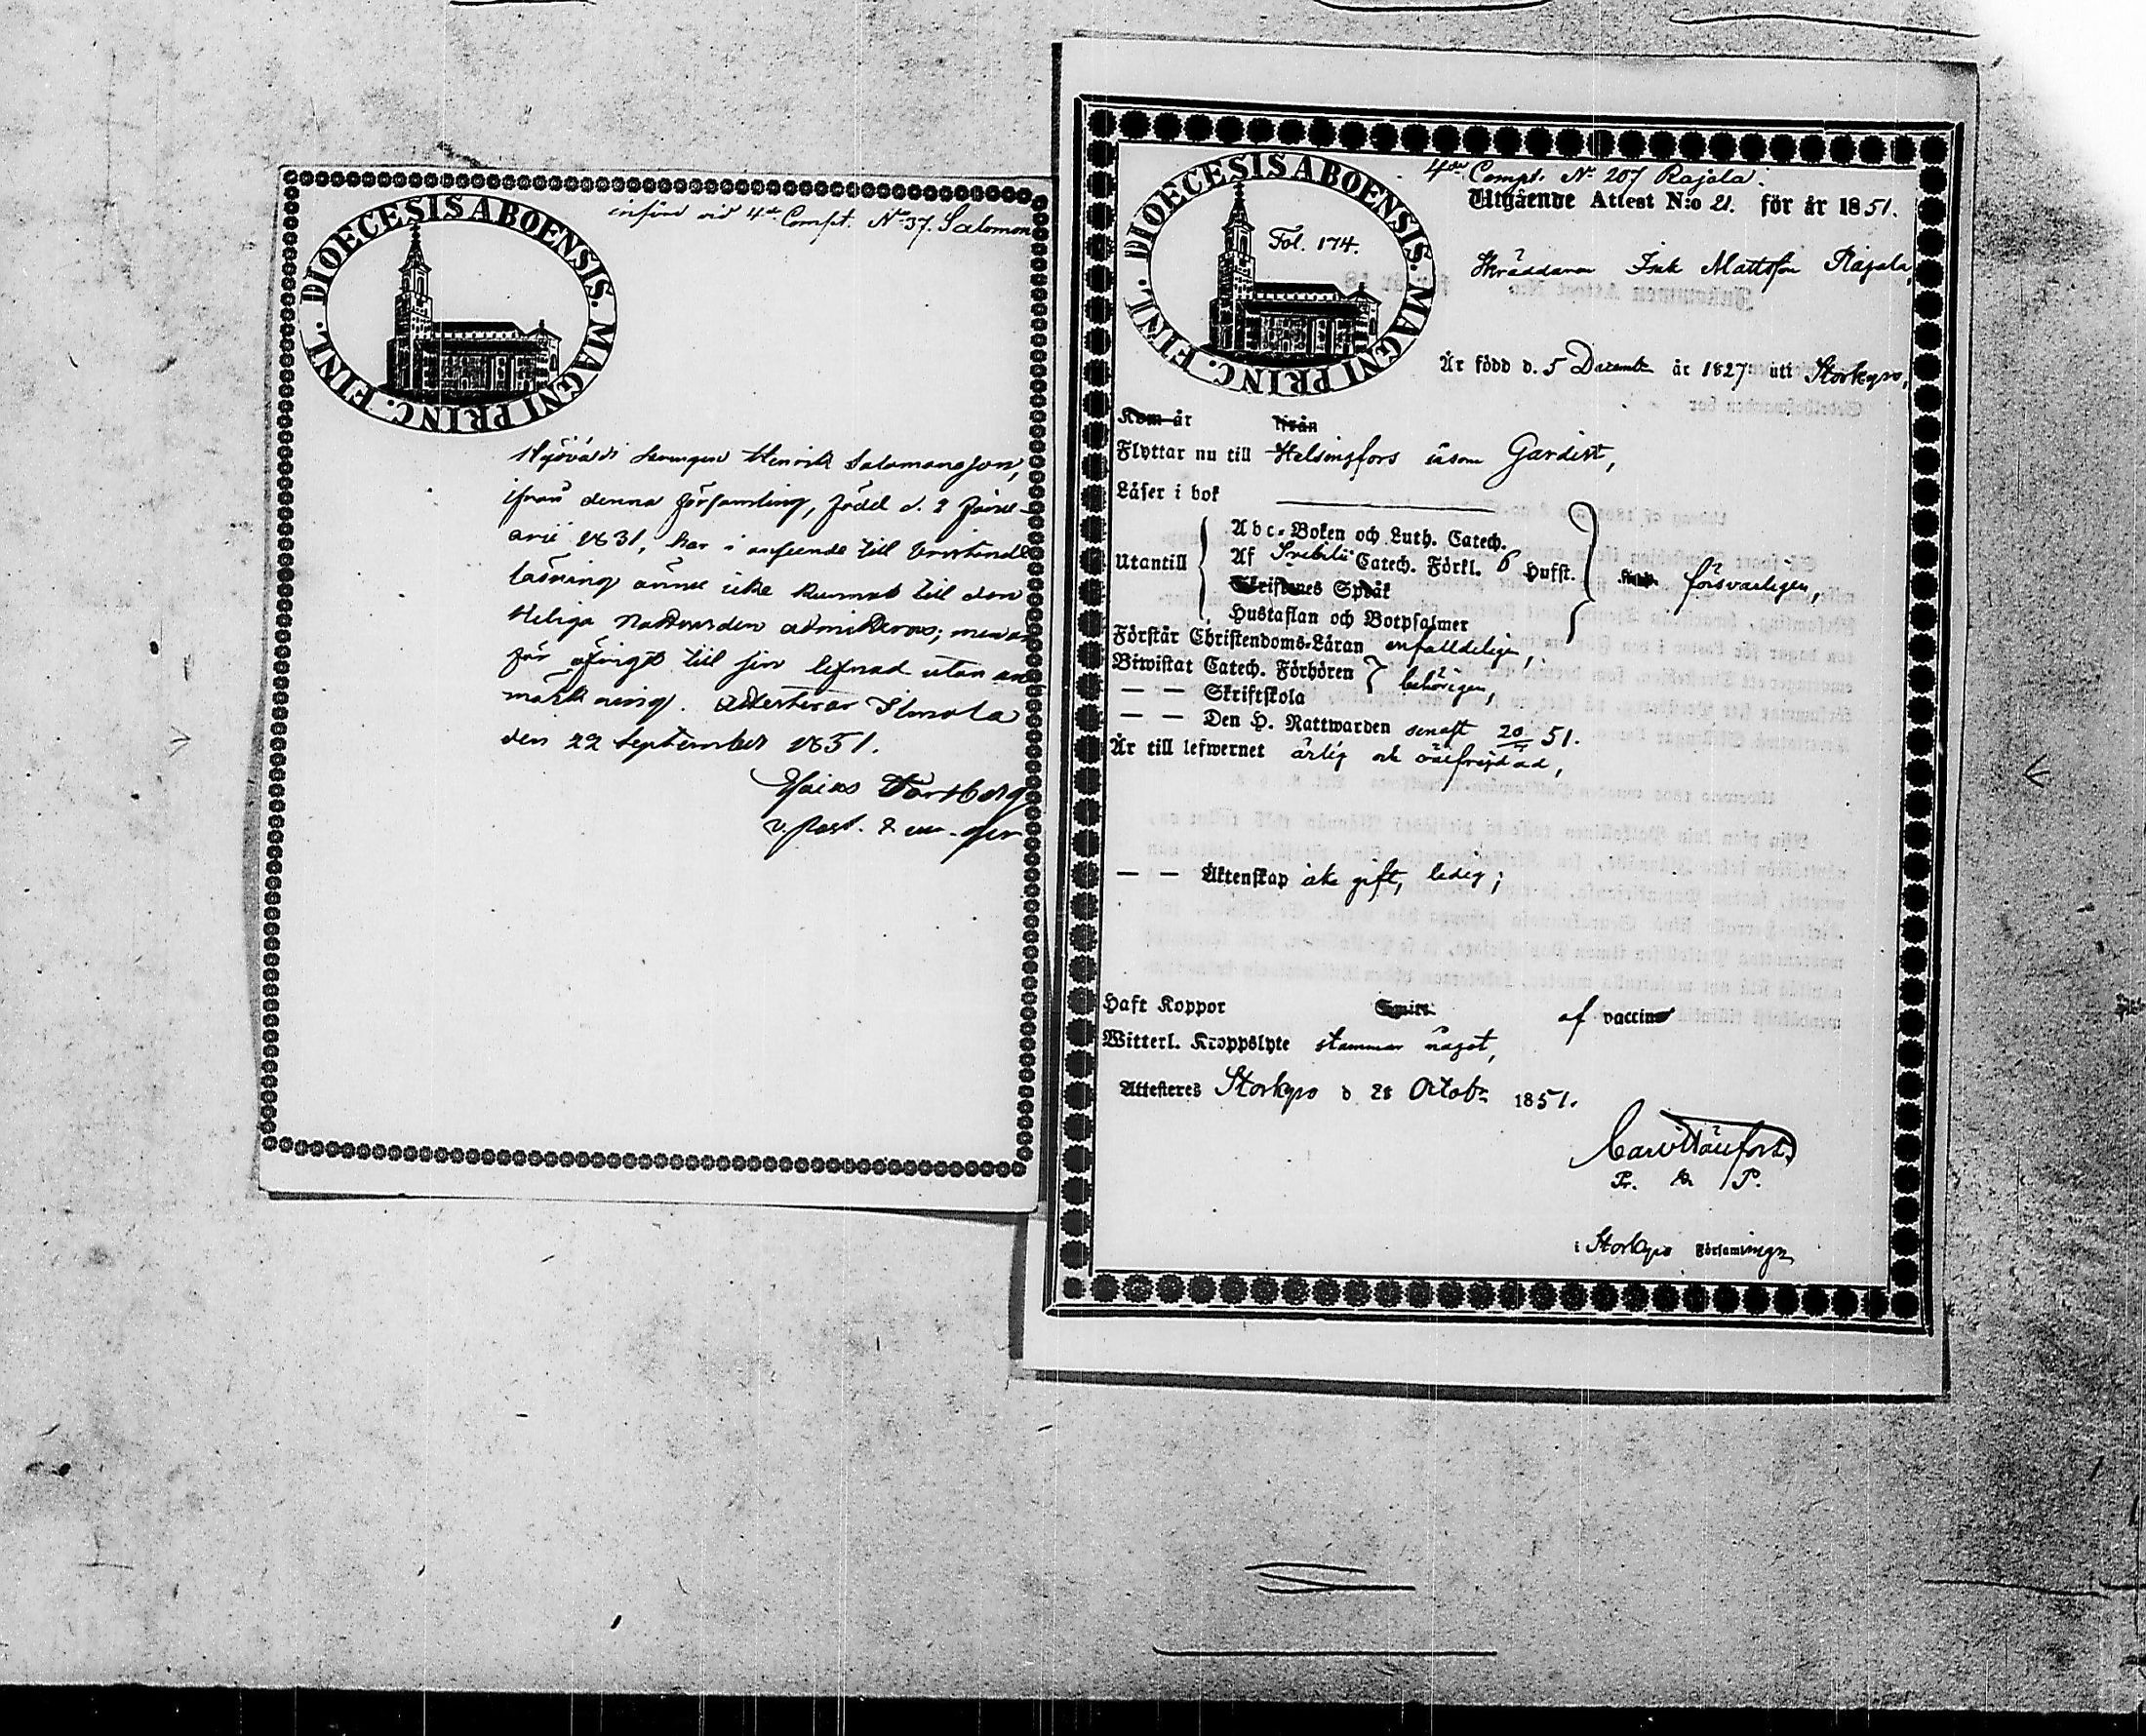 införd vid 4de Compt. No 37. Salomon
DIOECESIS ABOENSIS. MAGNI PRINC. FINL.
Drengen Henrik Salomonsson,
ifrån denna församling, född d. 2 Janu-
arii 1831, har i anseende till
läsning ännu icke kunnat till den
Heliga Nattvarden admitteras; men an-
för öfrigt till sin lefnad utan an-
märkning. Attesterar Ilmola
den 22 September 1851.
Esaias
v. Past.
4de Compt. No 207 Rajala.
Utgående Attest N:o 21. för år 1851.
DIOECESIS ABOENSIS. MAGNI PRINC. FINL.
Fol. 174.
Skräddaren Isak Mattsson Rajala,
Är född d. 5 Decemb. år 1827 uti Storkyro,
Kom år ifrån
Flyttar nu till Helsingfors såsom Gardist,
Läser i bok
Utantill
Abc-Boken och Luth. Catech.
Af Svebilii Catech. Förkl. 6 Hufst.
Christenes Språk
Hustaflan och Botpsalmer
försvarligen,
Förstår Christendoms-Läran enfalldeligen,
Biwistat Catech. Förhören
— — Skriftskola
behörigen,
— — Den H. Nattwarden senast 20/ 51.
Är till lefwernet ärlig och välfrejdad,
— — Äktenskap icke gift, ledig;
Haft Koppor af vaccin
Witterl. Kroppslyte stammar något,
Attesteres Storkyro d 28 Octob. 1851.
Pr. P.
i Storkyro Församlingn